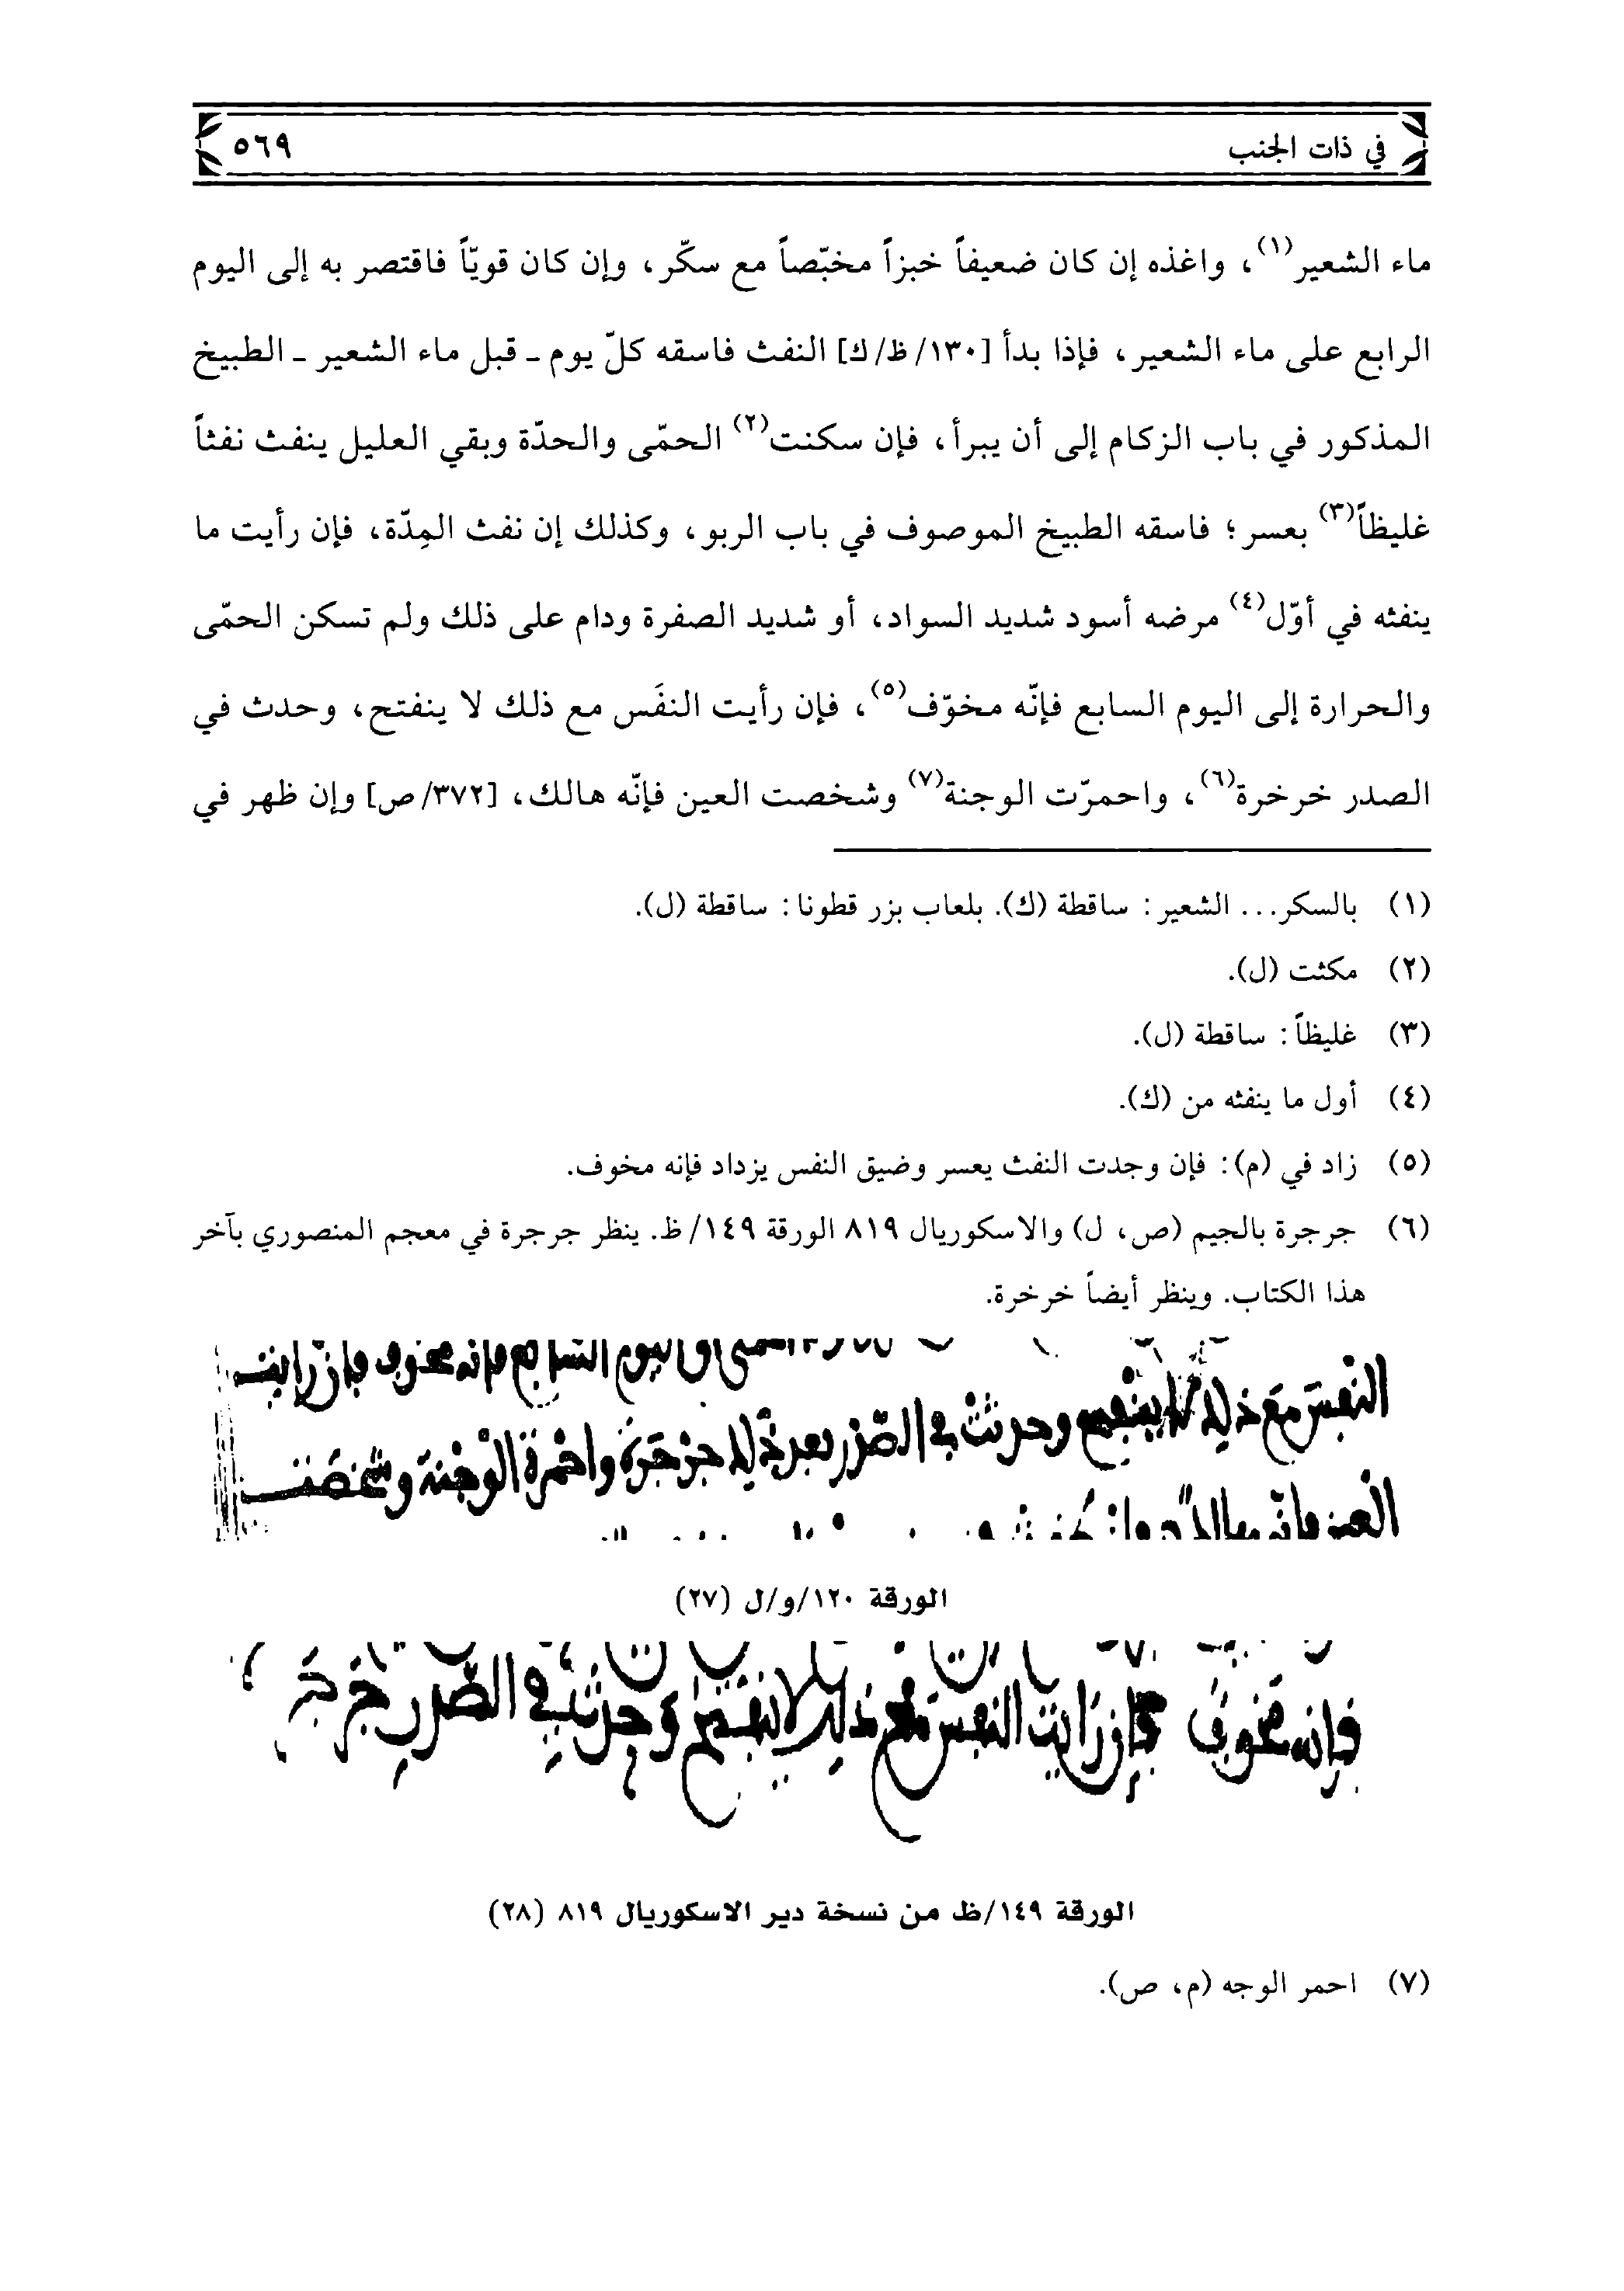 في ذات الجنب ٥٦٩
ماء الشعير(١)، واغذه إن كان ضعيفاً خبزاً مخبّصاً مع سكّر، وإن كان قويّاً فاقتصر به إلى اليوم
الرابع على ماء الشعير، فإذا بدأ [١٣٠/ ظ/ ك] النفث فاسقه كلّ يوم ـ قبل ماء الشعير ـ الطبيخ
المذكور في باب الزكام إلى أن يبرأ، فإن سكنت(٢) الحمّى والحدّة وبقي العليل ينفث نفثاً
غليظاً(٣) بعسر؛ فاسقه الطبيخ الموصوف في باب الربو، وكذلك إن نفث المِدّة، فإن رأيت ما
ينفثه في أوّل(٤) مرضه أسود شديد السواد، أو شديد الصفرة ودام على ذلك ولم تسكن الحمّى
والحرارة إلى اليوم السابع فإنّه مخوّف(٥)، فإن رأيت النفَس مع ذلك لا ينفتح، وحدث في
الصدر خرخرة(٦)، واحمرّت الوجنة(٧) وشخصت العين فإنّه هالك، [٣٧٢/ ص] وإن ظهر في
(١) بالسكر... الشعير: ساقطة (ك). بلعاب بزر قطونا: ساقطة (ل).
(٢) مكثت (ل).
(٣) غليظاً: ساقطة (ل).
(٤) أول ما ينفثه من (ك).
(٥) زاد في (م): فإن وجدت النفث يعسر وضيق النفس يزداد فإنه مخوف.
(٦) جرجرة بالجيم (ص، ل) والاسكوريال ٨١٩ الورقة ١٤٩/ ظ. ينظر جرجرة في معجم المنصوري بآخر
هذا الكتاب. وينظر أيضاً خرخرة.
اليوم السابع فإنه مخوف فإن رأيت
النفس مع ذلك لا ينفتح وحدث في الصدر بعد ذلك جرجرة واحمرة الوجنة وشخصت
العين فإنه هالك
الورقة ١٢٠/و/ل (٢٧)
فإنه مخوف فإن رأيت النفس مع ذلك لا ينفتح وحدث في الصدر جرجرة
الورقة ١٤٩/ظ من نسخة دير الاسكوريال ٨١٩ (٢٨)
(٧) احمر الوجه (م، ص).